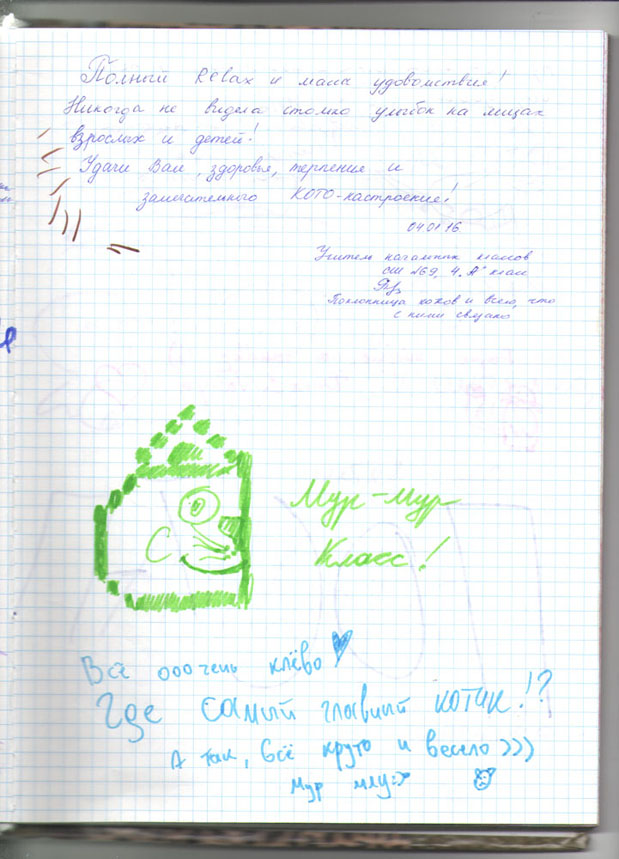 Полный Relax и масса удовольствия!
Никогда не видела столько улыбок на лицах
взрослых и детей!
Удачи Вам, здоровья, терпения и
замечательного КОТО-настроения!
04 01 16
Учитель начальных классов
СШ №69, 4 "А" класс
Поклонница котов и всего, что
с ними связано
Мур-мур
Класс!
Всё ооочень клёво
Где самый главный котик!?
А так, всё круто и весело )))
Мур мяу:>